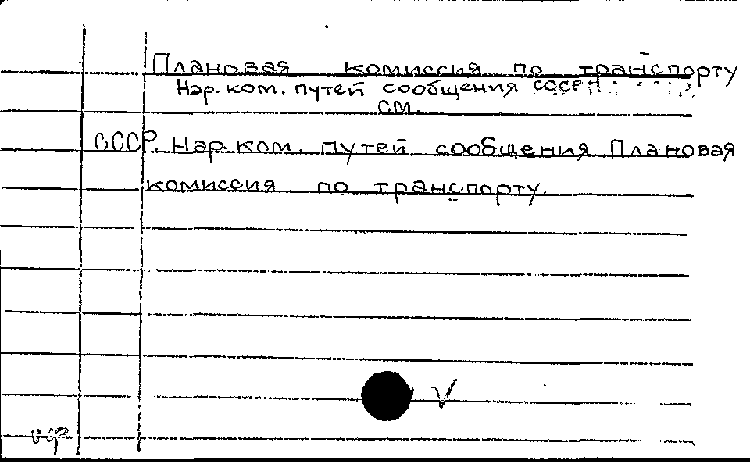 Плановая комиссия по транспорту
Нар. ком. путей сообщения СССР
см.
СССР. Нар. ком. путей сообщения Плановая
комиссия по транспорту.